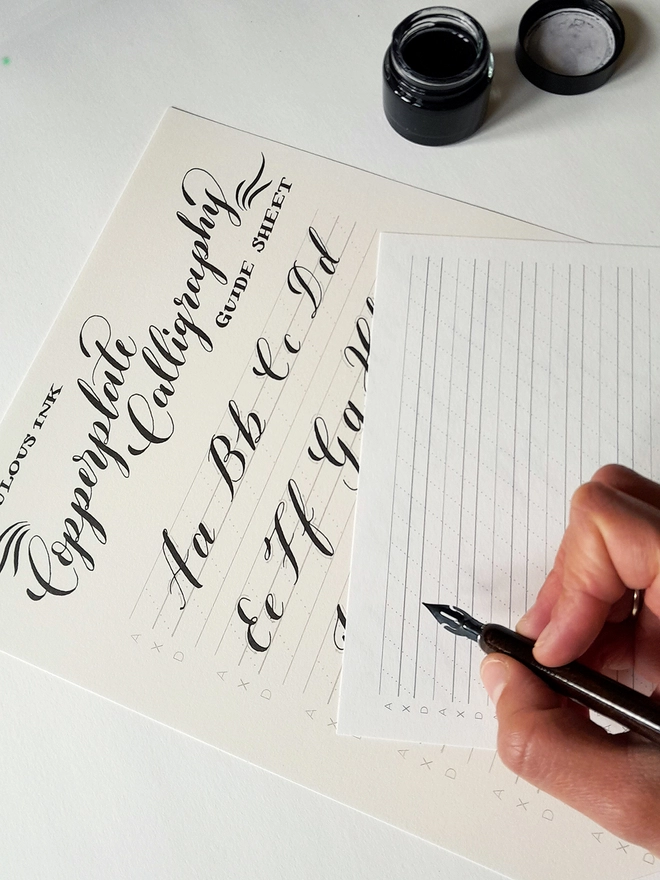 ULOUS INK
Copperplate
Calligraphy
GUIDE SHEET
Aa Bb Cc Dd
A X D
Ee Ff Gg H
A X D
A X
A X D
A X D
A X D
A X D A X D